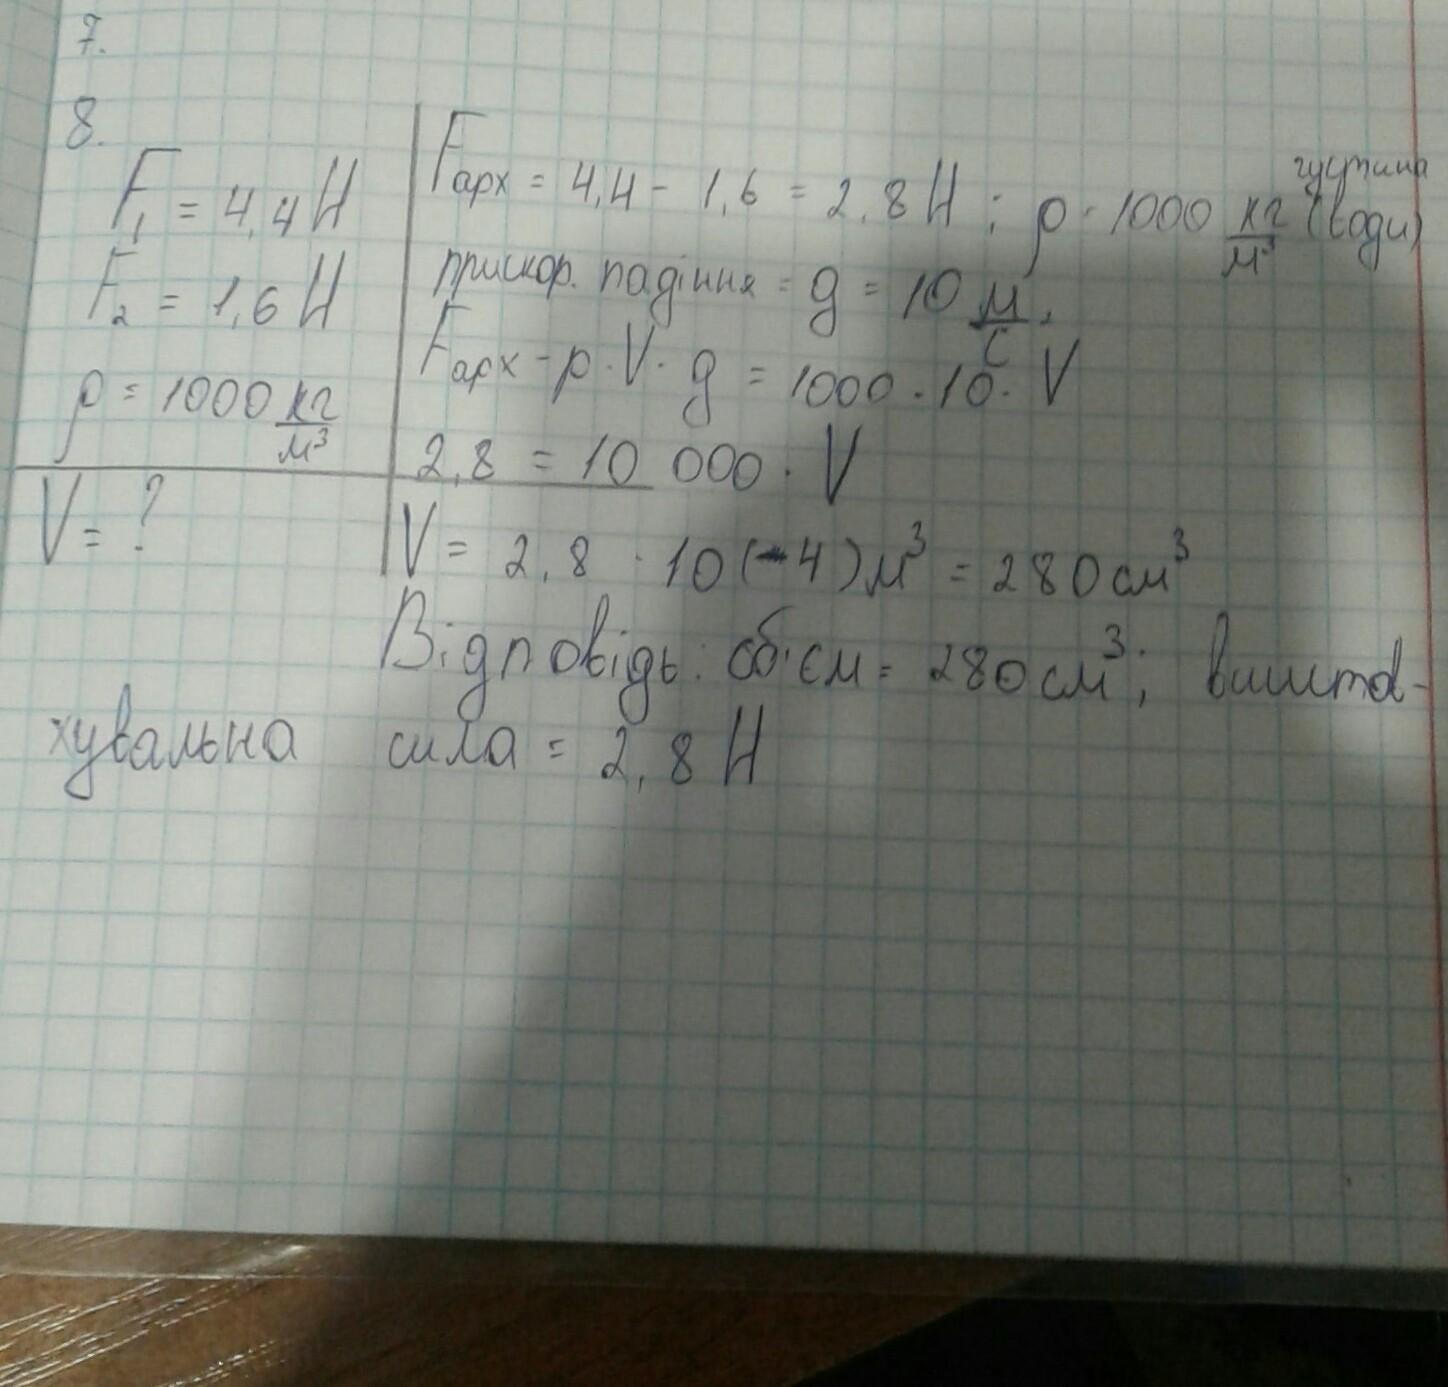 7.
8.
F₁ = 4,4 Н
F₂ = 1,6 Н
ρ = 1000 кг/м³
V = ?
Fарх = 4,4 - 1,6 = 2,8 Н ; ρ · 1000 кг/м³ густина (води)
прискор. падіння = g = 10 м/с,
Fарх - ρ · V · g = 1000 · 10 · V
2,8 = 10 000 · V
V = 2,8 · 10 (-4) м³ = 280 см³
Відповідь: об'єм = 280 см³; виштов-
хувальна сила = 2,8 Н